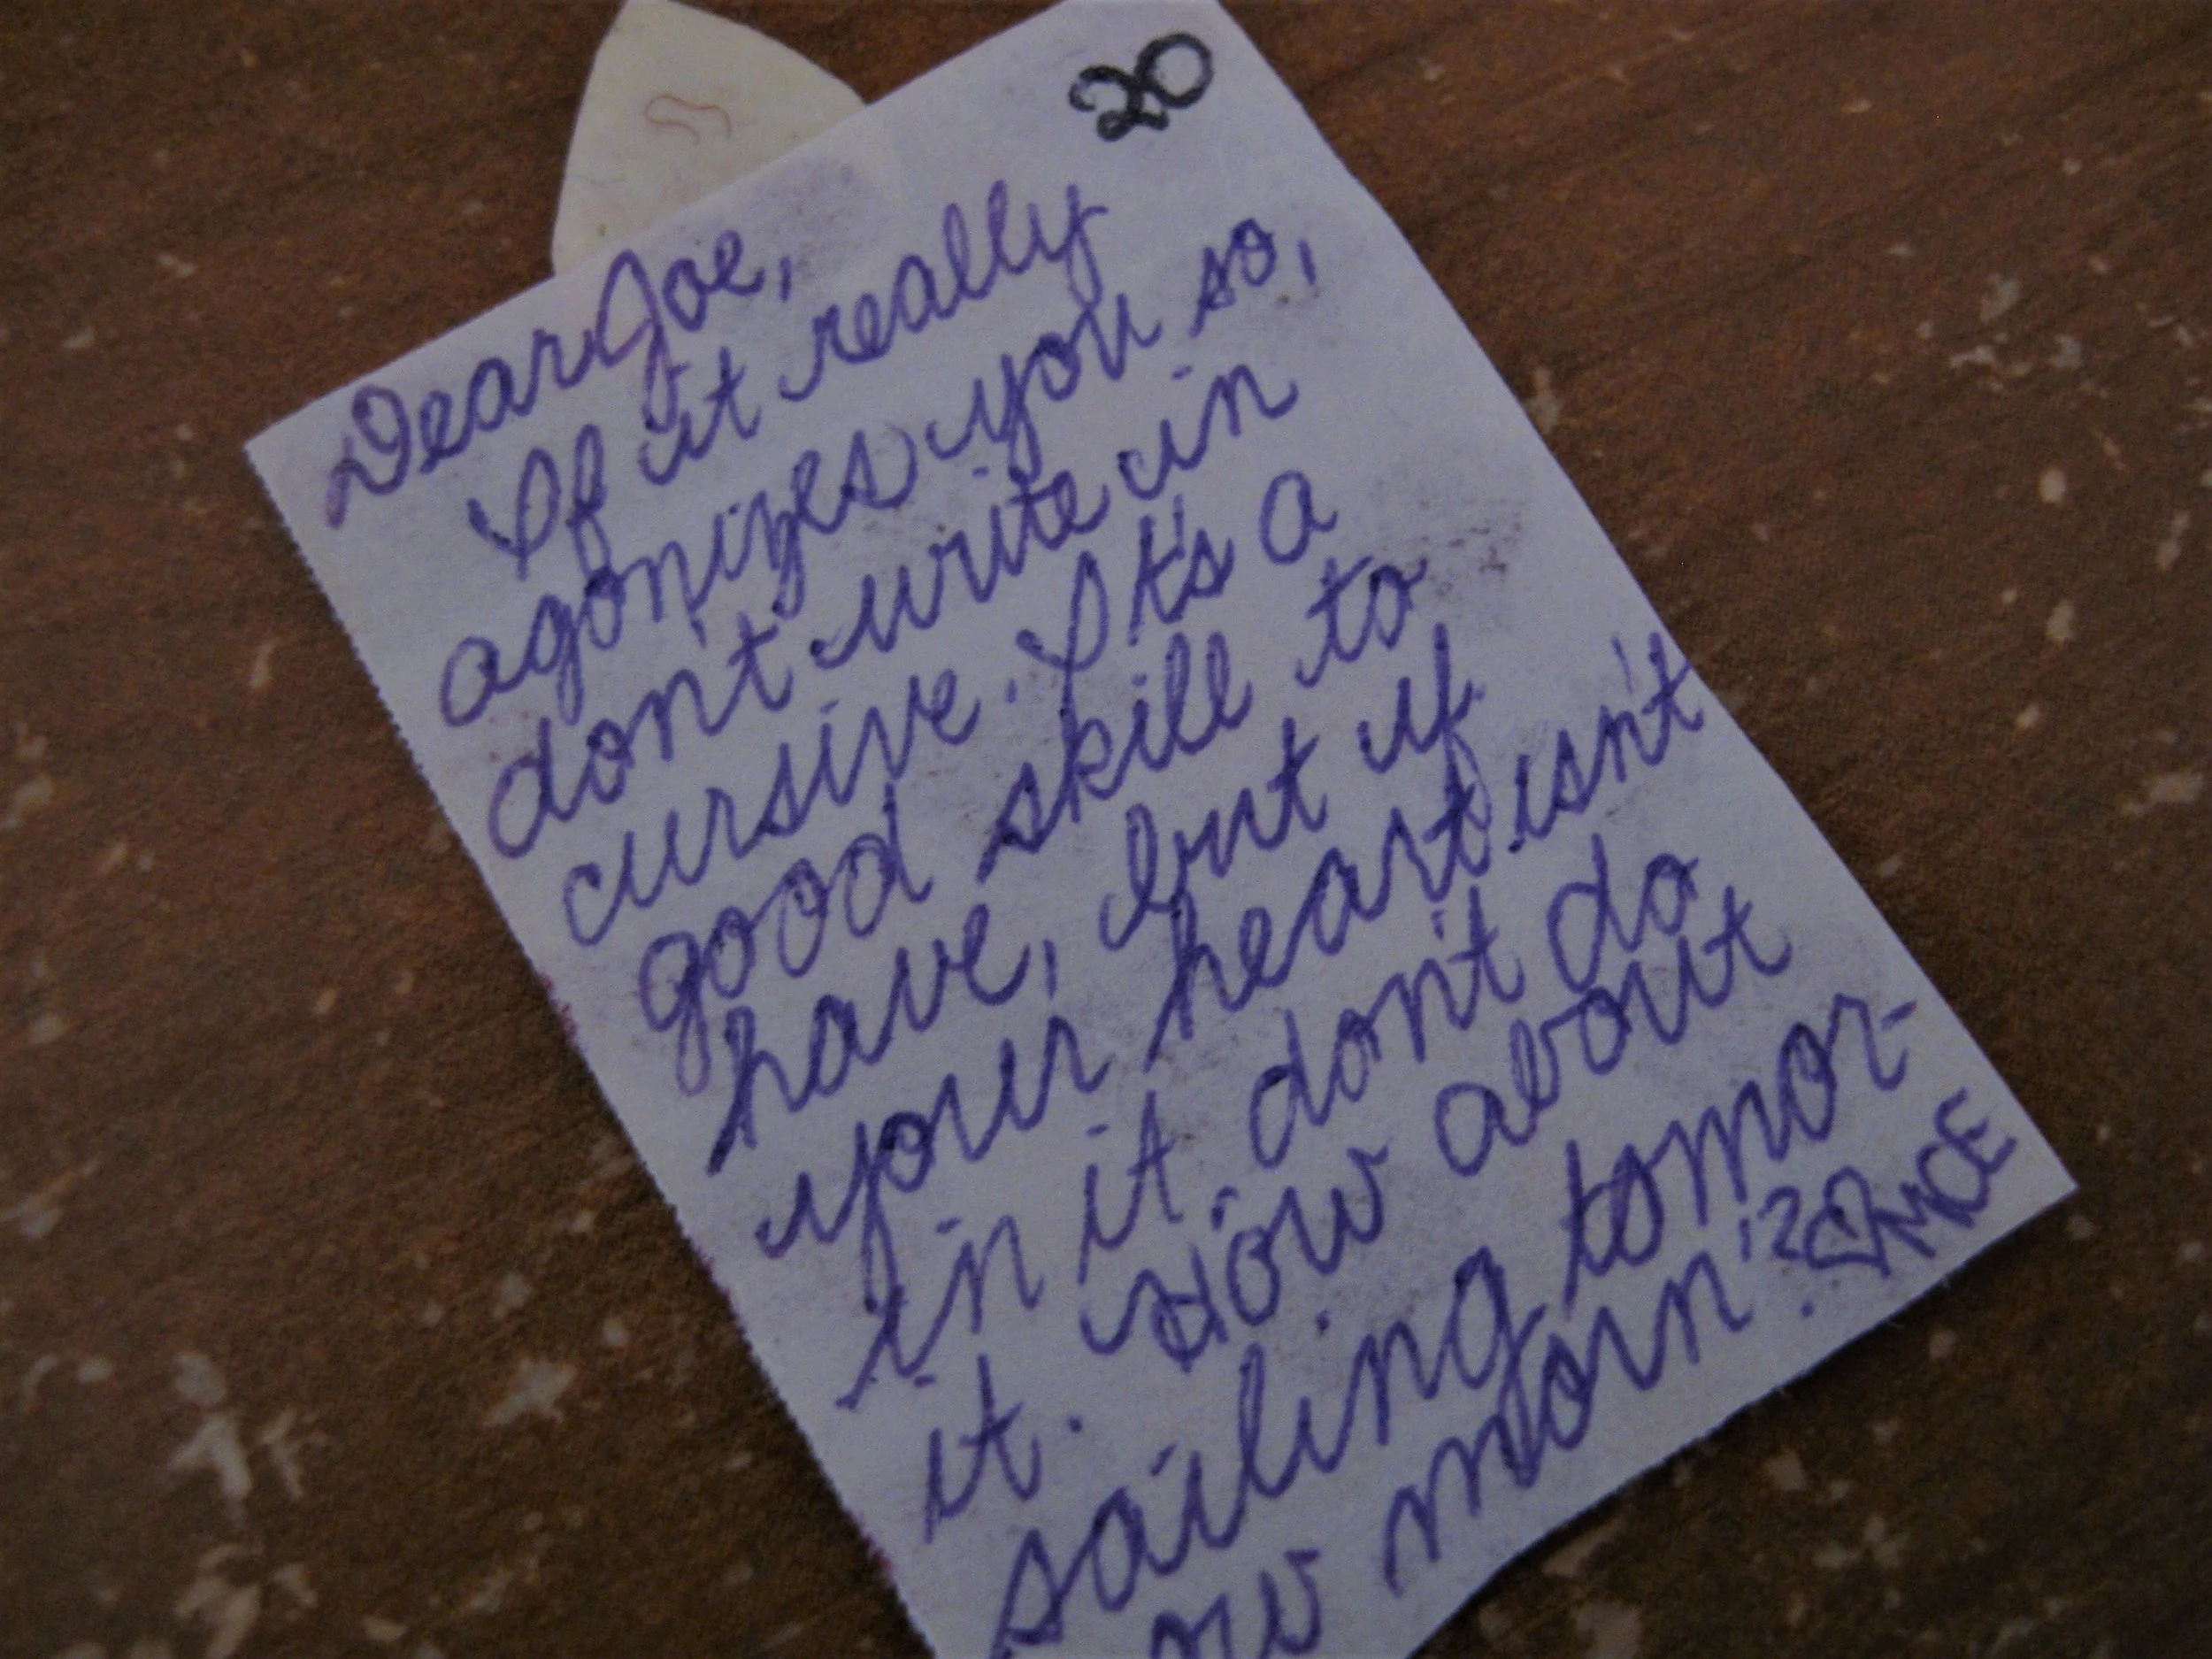 20
Dear Joe,
If it really
agonizes you so,
don't write in
cursive. It's a
good skill to
have, but if
your heart isn't
in it, don't do
it. How about
sailing tomor-
ow morn'?